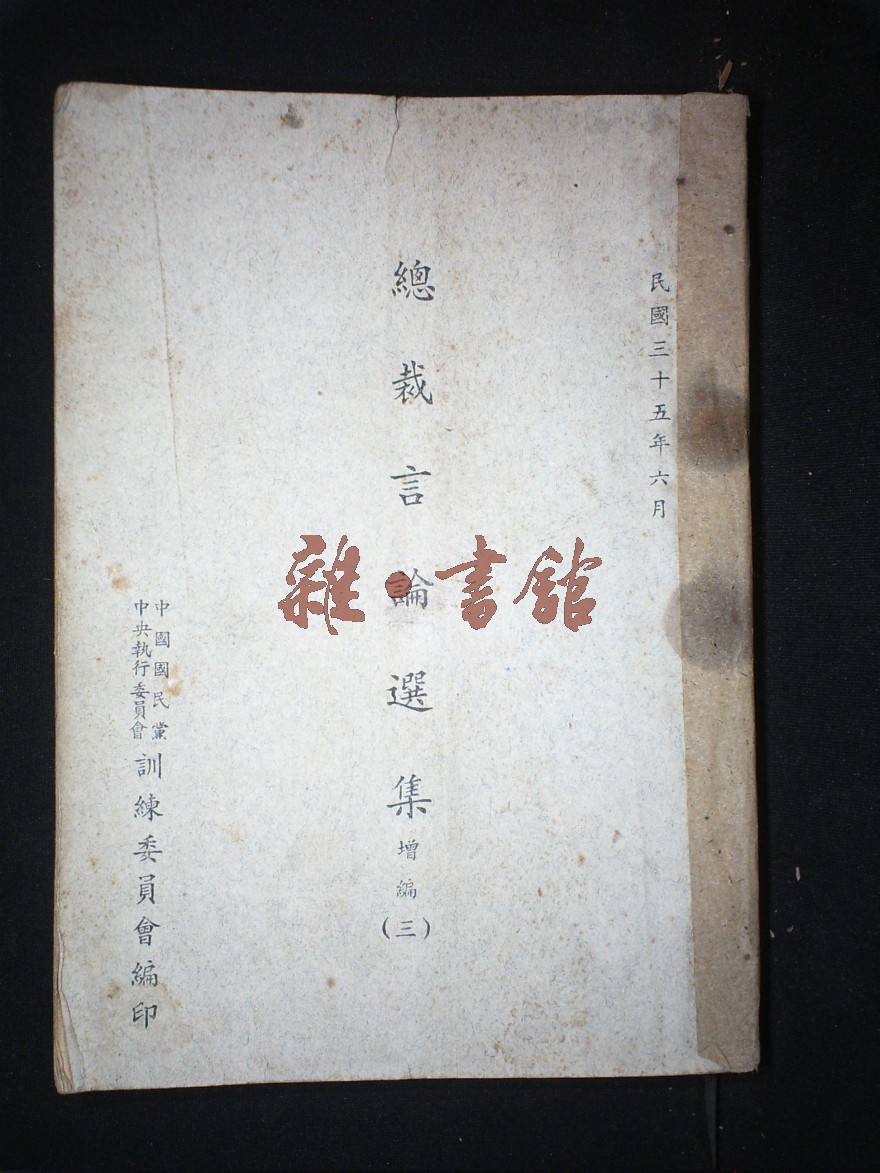 民國三十五年六月
總裁言論選集增編(三)
中國國民黨
中央執行委員會
訓練委員會編印
雜·書館